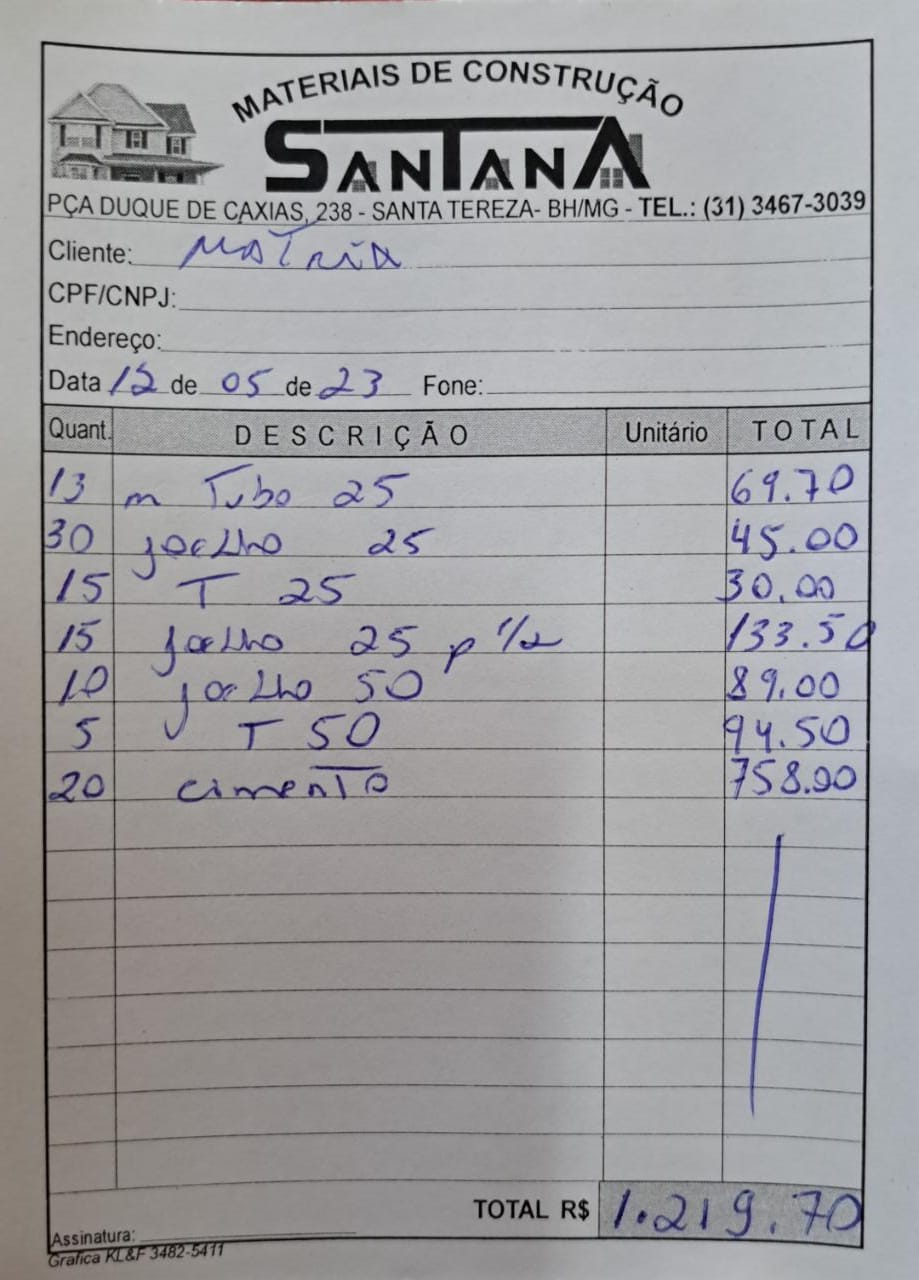 MATERIAIS DE CONSTRUÇÃO
SANTANA
PÇA DUQUE DE CAXIAS, 238 - SANTA TEREZA- BH/MG - TEL.: (31) 3467-3039
Cliente: MATRIX
CPF/CNPJ:
Endereço:
Data 12 de 05 de 23 Fone:
Quant. DESCRIÇÃO Unitário TOTAL
13 m Tubo 25 69.70
30 joelho 25 45.00
15 T 25 30.00
15 joelho 25 p 1/2 133.50
10 joelho 50 89.00
5 T 50 94.50
20 cimento 758.00
TOTAL R$ 1.219.70
Assinatura:
Grafica KL&F 3482-5411